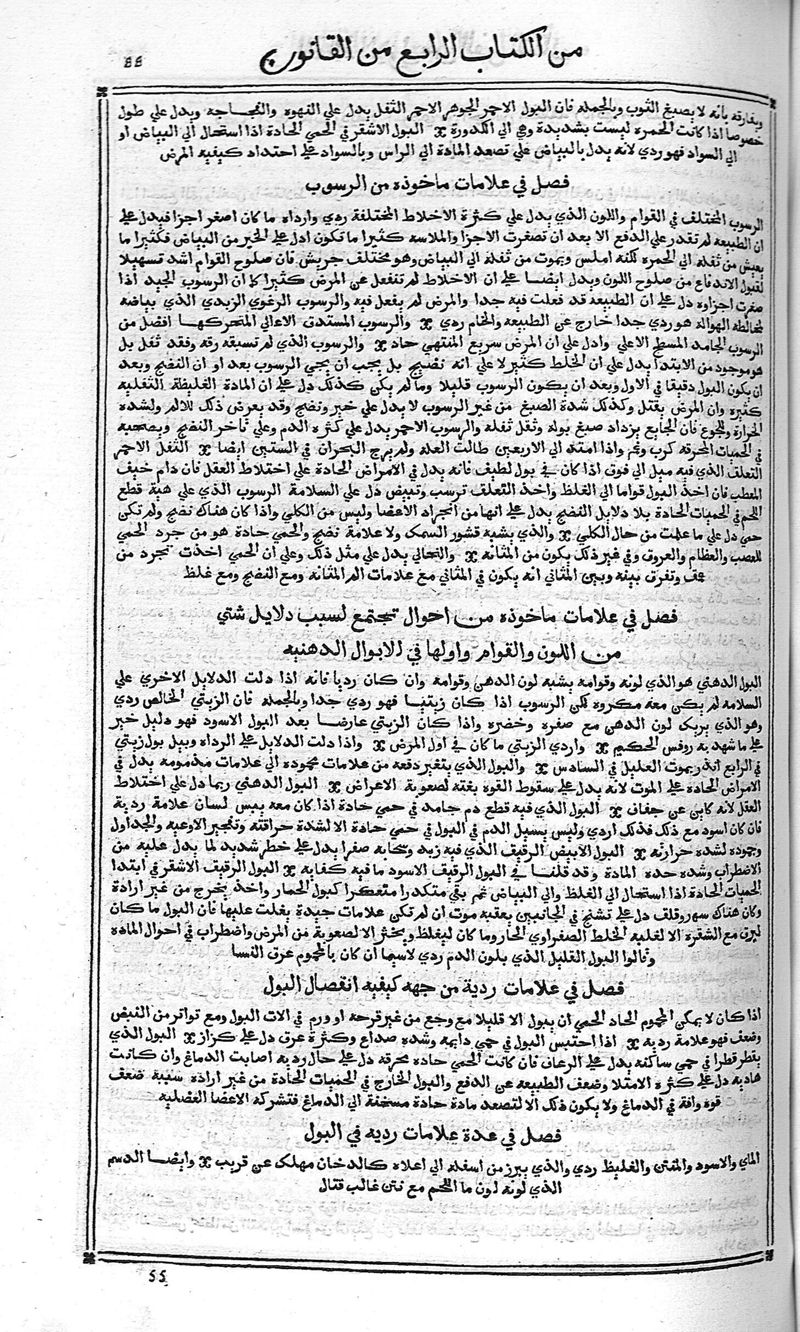 من الكتاب الرابع من القانون
ويفارقه بانه لا يصبغ الثوب وبالجمله فان البول الاحمر الجوهر الاحمر الثفل يدل علي النهوه والفجاجه ويدل علي طول
خصوصا اذا كانت الحمره ليست بشديدة وهي الي الكدورة البول الاشقر في الحمي الحادة اذا استحال الي البياض او
الي السواد فهو ردي لانه يدل بالبياض علي تصعد المادة الي الراس وبالسواد علي احتداد كيفيه المرض
فصل في علامات ماخوذه من الرسوب
الرسوب المختلف في القوام واللون الذي يدل علي كثرة الاخلاط المختلفة ردي وارداه ما كان اصغر اجزا فيدل علي
ان الطبيعه لم تقدر علي الدفع الا بعد ان تصغرت الاجزا والملاسه كثيرا ما تكون ادل علي الخير من البياض فكثيرا ما
يعيش من ثفله الي الحمره لكنه املس ويموت من ثفله الي البياض وهو مختلف جريش فان صلوح القوام اشد تسهيلا
لقبول الاندفاع من صلوح اللون ويدل ايضا علي ان الاخلاط لم تنفعل عن المرض كثيرا كما ان الرسوب الجيد اذا
صغرت اجزاوه دل علي ان الطبيعه قد فعلت فيه جدا والمرض لم يفعل فيه والرسوب الرغوي الزبدي الذي بياضه
لمخالطه الهوا له هو ردي جدا خارج عن الطبيعه والخام ردي والرسوب المستدق الاعالي المتحركها افضل من
الرسوب الجامد المسطح الاعلي وادل علي ان المرض سريع المنتهي حاد والرسوب الذي لم تسبقه رقه وفقد ثفل بل
هو موجود من الابتدا يدل علي ان الخلط كثير لا علي انه نضيج بل يجب ان يجي الرسوب بعد او ان النضج وبعد
ان يكون البول دقيقا في الاول وبعد ان يكون الرسوب قليلا وما لم يكن كذلك دل علي ان المادة الغليظة الثفليه
كثيره وان المرض يقتل وكذلك شدة الصبغ من غير الرسوب لا يدل علي خير ونضج وقد يعرض ذلك للالم ولشده
الحرارة وللجوع فان الجايع يزداد صبغ بوله وثفل ثفله والرسوب الاحمر يدل علي كثره الدم وعلي تاخر النضج ويصحبه
في الحميات المحرقه كرب وغم واذا امتد الي الاربعين طالت العله ولم يرج البحران في الستين ايضا الثفل الاحمر
المتعلق الذي فيه ميل الي فوق اذا كان في بول لطيف فانه يدل في الامراض الحادة علي اختلاط العقل فان دام خيف
المعطب فان اخذ البول قواما الي الغلظ واخذ التعلق ترسب وتبيض دل علي السلامة الرسوب الذي علي هية قطع
اللحم في الحميات الحادة بلا دلايل النضج يدل علي انها من انجراد الاعضا وليس من الكلي واذا كان هناك نضج ولم تكن
حمي دل علي ما علمت من حال الكلي والذي يشبه قشور السمك ولا علامة نضج والحمي حادة هو من جرد الحمي
للعصب والعظام والعروق وفي غير ذلك يكون من المثانه والنخالي يدل علي مثل ذلك وعلي ان الحمي اخذت تجرد من
وتفرق بينه وبين المثاني انه يكون في المثاني مع علامات الم المثانه ومع النضج ومع غلظ
فصل في علامات ماخوذه من احوال تجتمع لسبب دلايل شتي
من اللون والقوام واولها في الابوال الدهنيه
البول الدهني هو الذي لونه وقوامه يشبه لون الدهن وقوامه وان كان رديا فانه اذا دلت الدلايل الاخري علي
السلامه لم يكن معه مكروه لكن الرسوب اذا كان زيتيا فهو ردي جدا وبالجمله فان الزيتي الخالص ردي
وهو الذي يريك لون الدهن مع صفره وخضره واذا كان الزيتي عارضا بعد البول الاسود فهو دليل خير
علي ما شهد به روفس الحكيم واردي الزيتي ما كان في اول المرض واذا دلت الدلايل علي الرداه وبيل بول زيتي
في الرابع انذر بموت العليل في السادس والبول الذي يتغير دفعه من علامات محموده الي علامات مذمومه يدل في
الامراض الحادة علي الموت لانه يدل علي سقوط القوه بغته لصعوبة الاعراض البول الدهني ربما دل علي اختلاط
العقل لانه كاين عن جفاف البول الذي فيه قطع دم جامد في حمي حادة اذا كان معه يبس لسان علامة ردية
فان كان اسود مع ذلك فذلك اردي وليس يسيل الدم في البول في حمي حادة الا لشدة حراقته وتفجير الاوعيه والجداول
وجموده لشده حرارته البول الابيض الرقيف الذي فيه زبد وسحابه صفرا يدل علي خطر شديد لما يدل عليه من
الاضطراب وشده حده المادة وقد قلنا في البول الرقيف الاسود ما فيه كفايه البول الرقيف الاشقر في ابتدا
الحميات الحادة اذا استحال الي الغلظ والي البياض ثم بقي متكدرا متعكرا كبول الحمار واخذ يخرج من غير ارادة
وكان هناك سهر وقلف دل علي تشنج في الجانبين يعقبه موت ان لم تكن علامات جيدة يغلت عليها فان البول ما كان
ليرق مع الشقرة الا لغلبه الخلط الصفراوي الحار وما كان ليغلظ ويخثر الا لصعوبة من المرض واضطراب في احوال المادة
وقالوا البول القليل الذي بلون الدم ردي لاسيما ان كان بالمحموم عرق النسا
فصل في علامات ردية من جهه كيفيه انفصال البول
اذا كان لا يمكن المحموم الحاد الحمي ان يبول الا قليلا مع وجع من غير قرحه او ورم في الات البول ومع تواتر من النبض
وضعف فهو علامة رديه اذا احتبس البول في حمي دايمه وشده صداع وكثرة عرق دل علي كزاز البول الذي
يقطر قطرا في حمي ساكنه يدل علي الرعاف فان كانت الحمي حاده محرقه دل علي حال رديه اصابت الدماغ وان كانت
هاديه دل علي كثره الامتلا وضعف الطبيعه عن الدفع والبول الخارج في الحميات الحادة من غير اراده سببه ضعف
قوه وافة في الدماغ ولا يكون ذلك الا لتصعد مادة حادة مسخنة الي الدماغ فتشركه الاعضا العضليه
فصل في عدة علامات رديه في البول
الماي والاسود والمنتن والغليظ ردي والذي يبرز من اسفله الي اعلاه كالدخان مهلك عن قريب وايضا الدسم
الذي لونه لون ما اللحم مع نتن غالب قتال
55